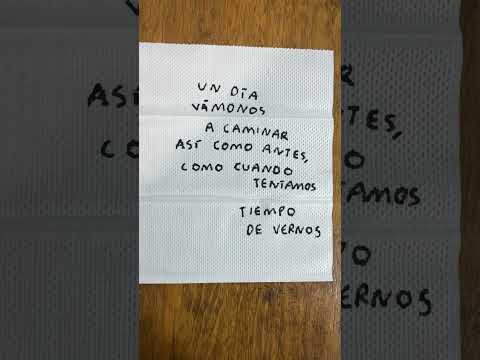 UN DÍA
VÁMONOS
A CAMINAR
ASÍ COMO ANTES,
COMO CUANDO
TENÍAMOS
TIEMPO
DE VERNOS